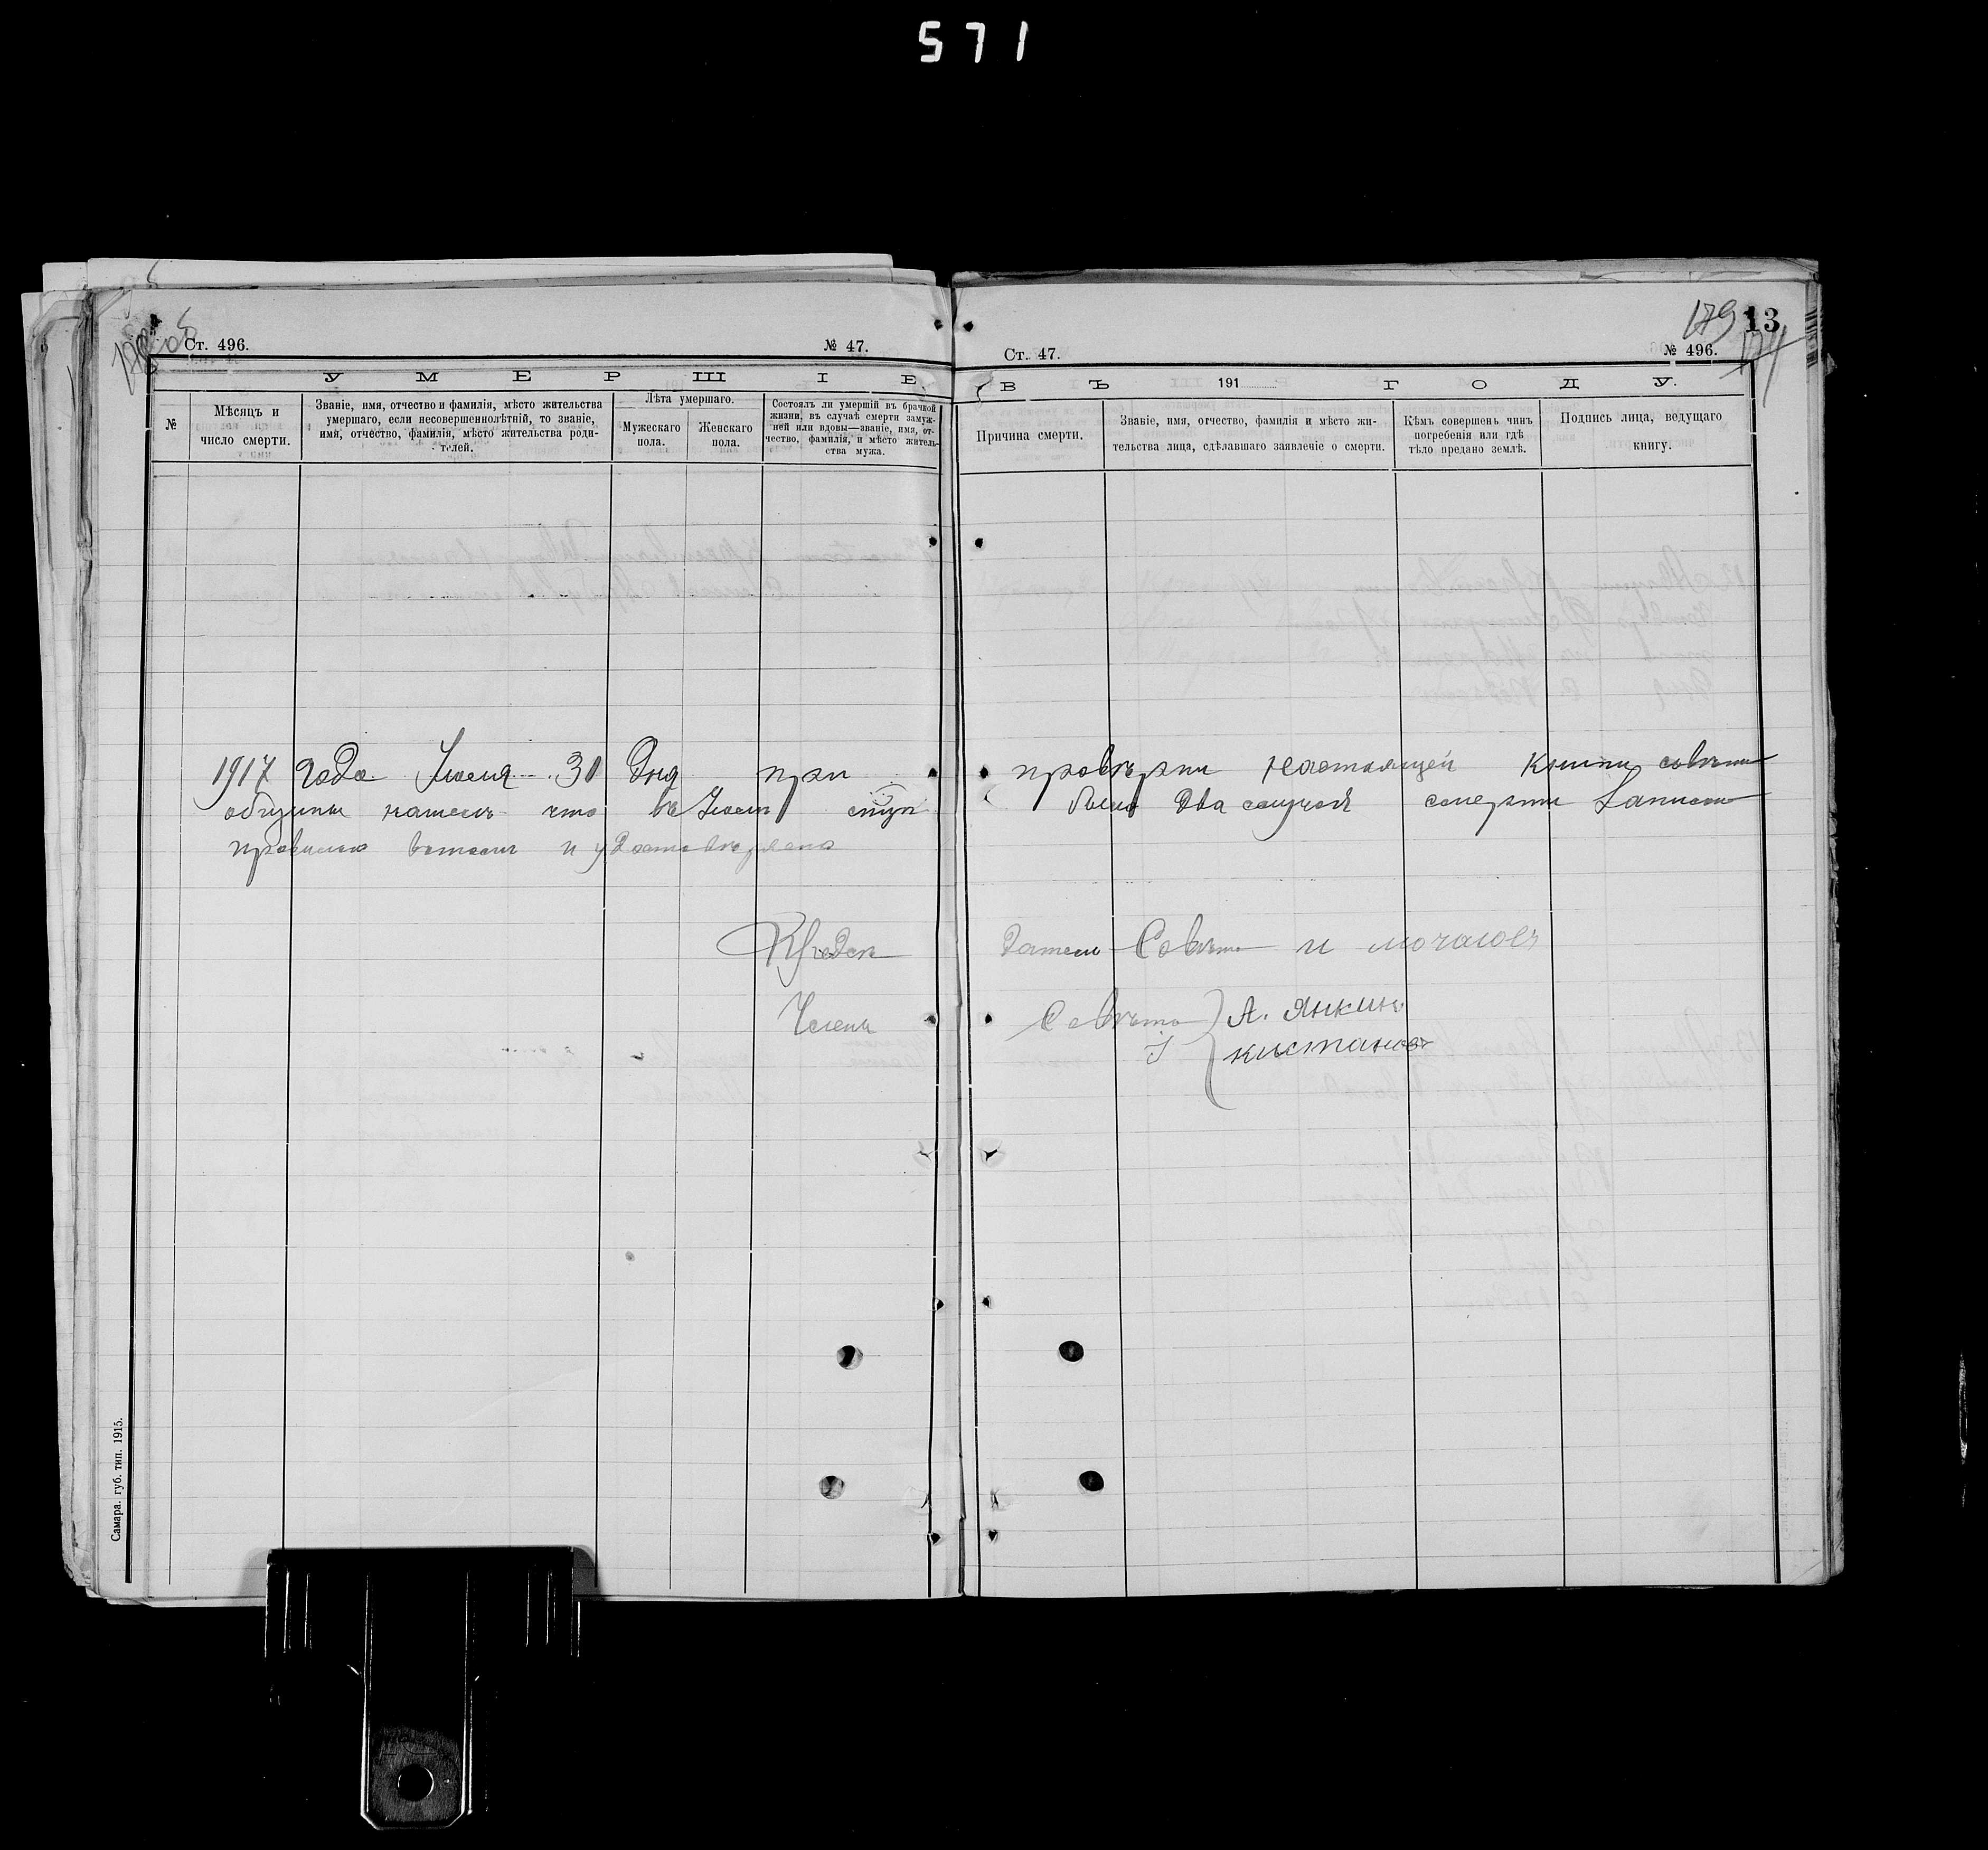 571
Ст. 496. № 47.
У М Е Р Ш І Е
№
Мѣсяцъ и число смерти.
Званіе, имя, отчество и фамилія, мѣсто жительства умершаго, если несовершеннолѣтній, то званіе, имя, отчество, фамилія, мѣсто жительства роди- телей.
Лѣта умершаго.
Мужескаго пола.
Женскаго пола.
Состоялъ ли умершій въ брачной жизни, въ случаѣ смерти замуж- ней или вдовы—званіе, имя, от- чество, фамилія, и мѣсто житель- ства мужа.
179 13
Ст. 47. № 496.
В Ъ 191 Г О Д У.
Причина смерти.
Званіе, имя, отчество, фамилія и мѣсто жи- тельства лица, сдѣлавшаго заявленіе о смерти.
Кѣмъ совершенъ чинъ погребенія или гдѣ тѣло предано землѣ.
Подпись лица, ведущаго книгу.
1917 года Июля 30 дня при провѣрки настоящей книги совѣтъ
общины нашелъ что въ Июлѣ было два случая смерти
и удостовѣрено
Предсѣ датель Совѣта и мочалов
Членъ Совѣта А. Янкин
кистанов
Самара. губ. тип. 1915.